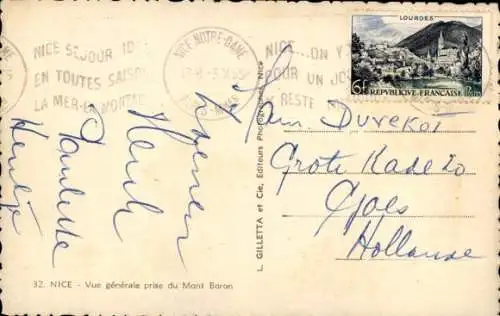 NICE SEJOUR
EN TOUTES SAISONS
LA MER-LA MONTAGNE
NICE NOTRE-DAME
NICE...ON Y
POUR UN JO
RESTE
LOURDES
6f
REPUBLIQUE FRANÇAISE
Henk
Paulette
Fam Duvekot
Grote Kade 20
Goes
Hollande
L. GILLETTA et Cie, Editeurs Photographes, Nice
32. NICE - Vue générale prise du Mont Boron